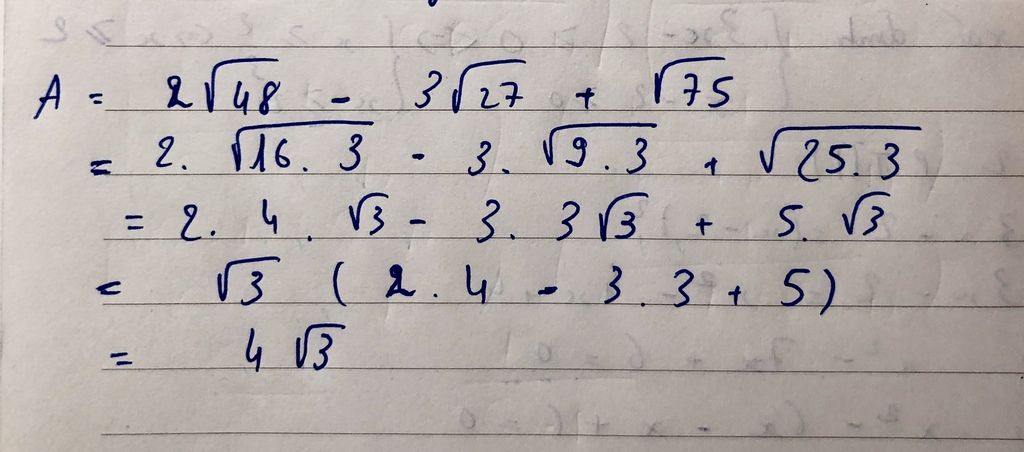 A = 2√48 - 3√27 + √75
= 2. √16. 3 - 3. √9. 3 + √25. 3
= 2. 4. √3 - 3. 3√3 + 5. √3
= √3 (2. 4 - 3. 3 + 5)
= 4√3